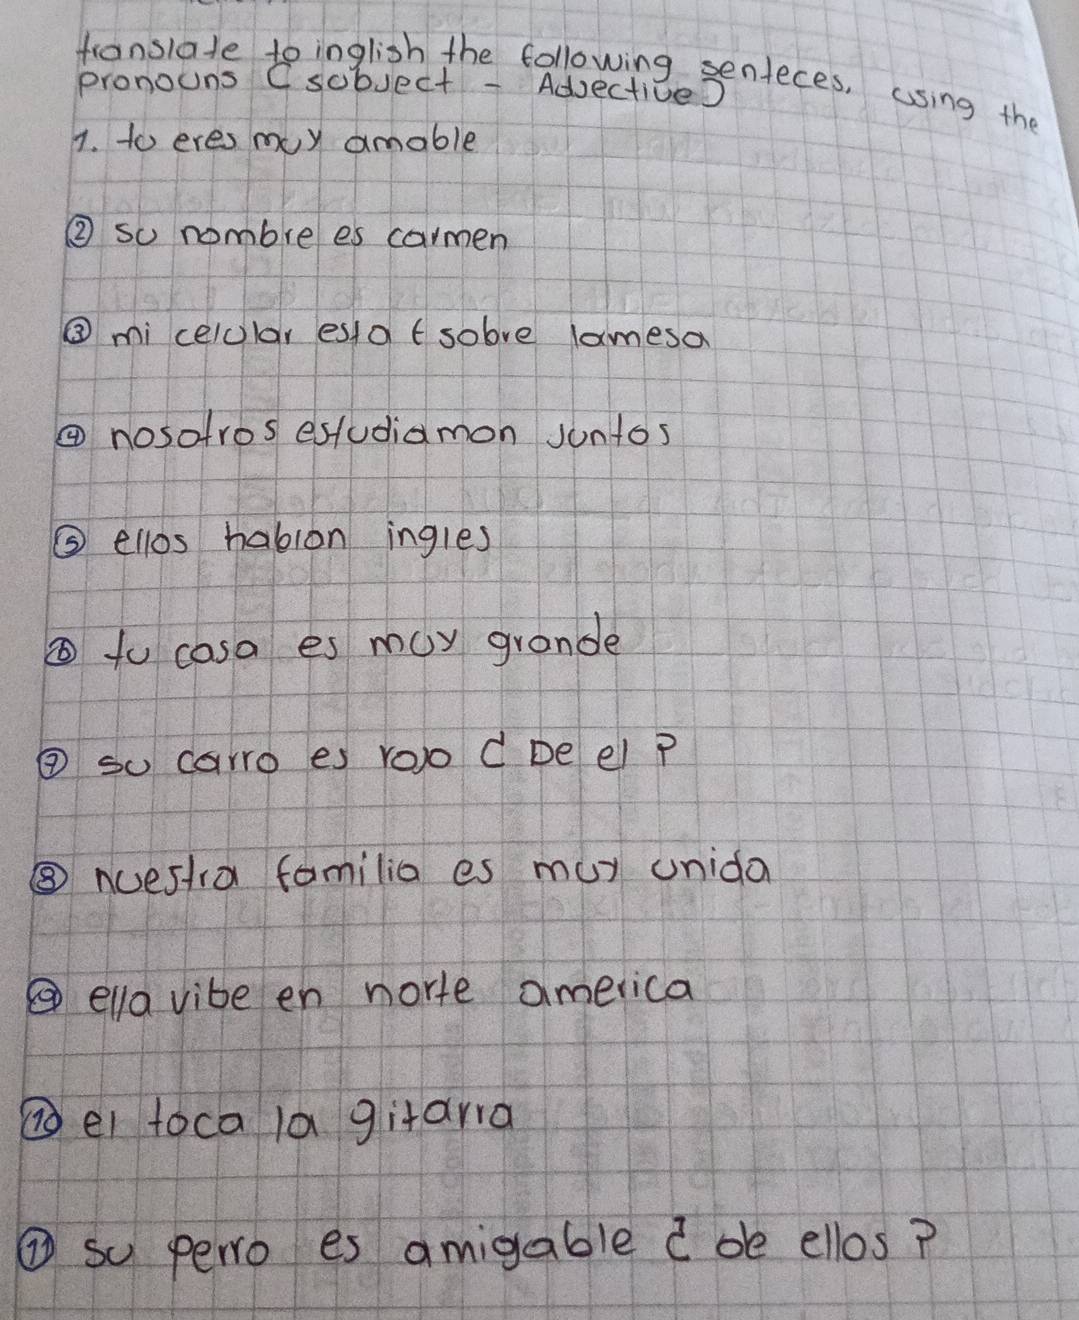 translate to inglish the following senteces, using the
pronouns (subject - Adjective)
1. tu eres muy amable
② su nombre es carmen
③ mi celular esta t sobre lamesa
④ nosotros estudiamon juntos
⑤ ellos hablan ingles
⑥ tu casa es muy grande
⑦ su carro es rojo ( De el ?
⑧ nuestra familia es muy unida
⑨ ella vibe en norte america
⑩ el toca la gitarra
⑪ su perro es amigable ¿ de ellos ?